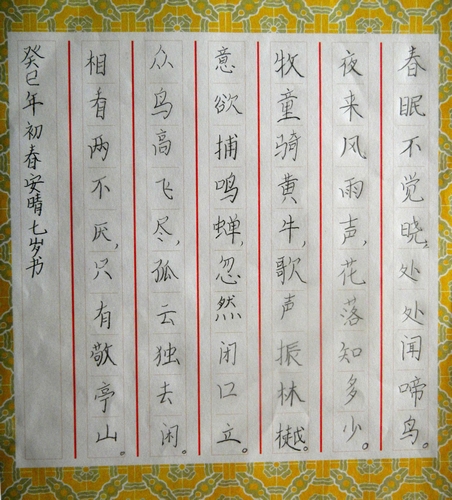 春眠不觉晓,处处闻啼鸟。
夜来风雨声,花落知多少。
牧童骑黄牛,歌声振林樾。
意欲捕鸣蝉,忽然闭口立。
众鸟高飞尽,孤云独去闲。
相看两不厌,只有敬亭山。
癸巳年初春安晴七岁书